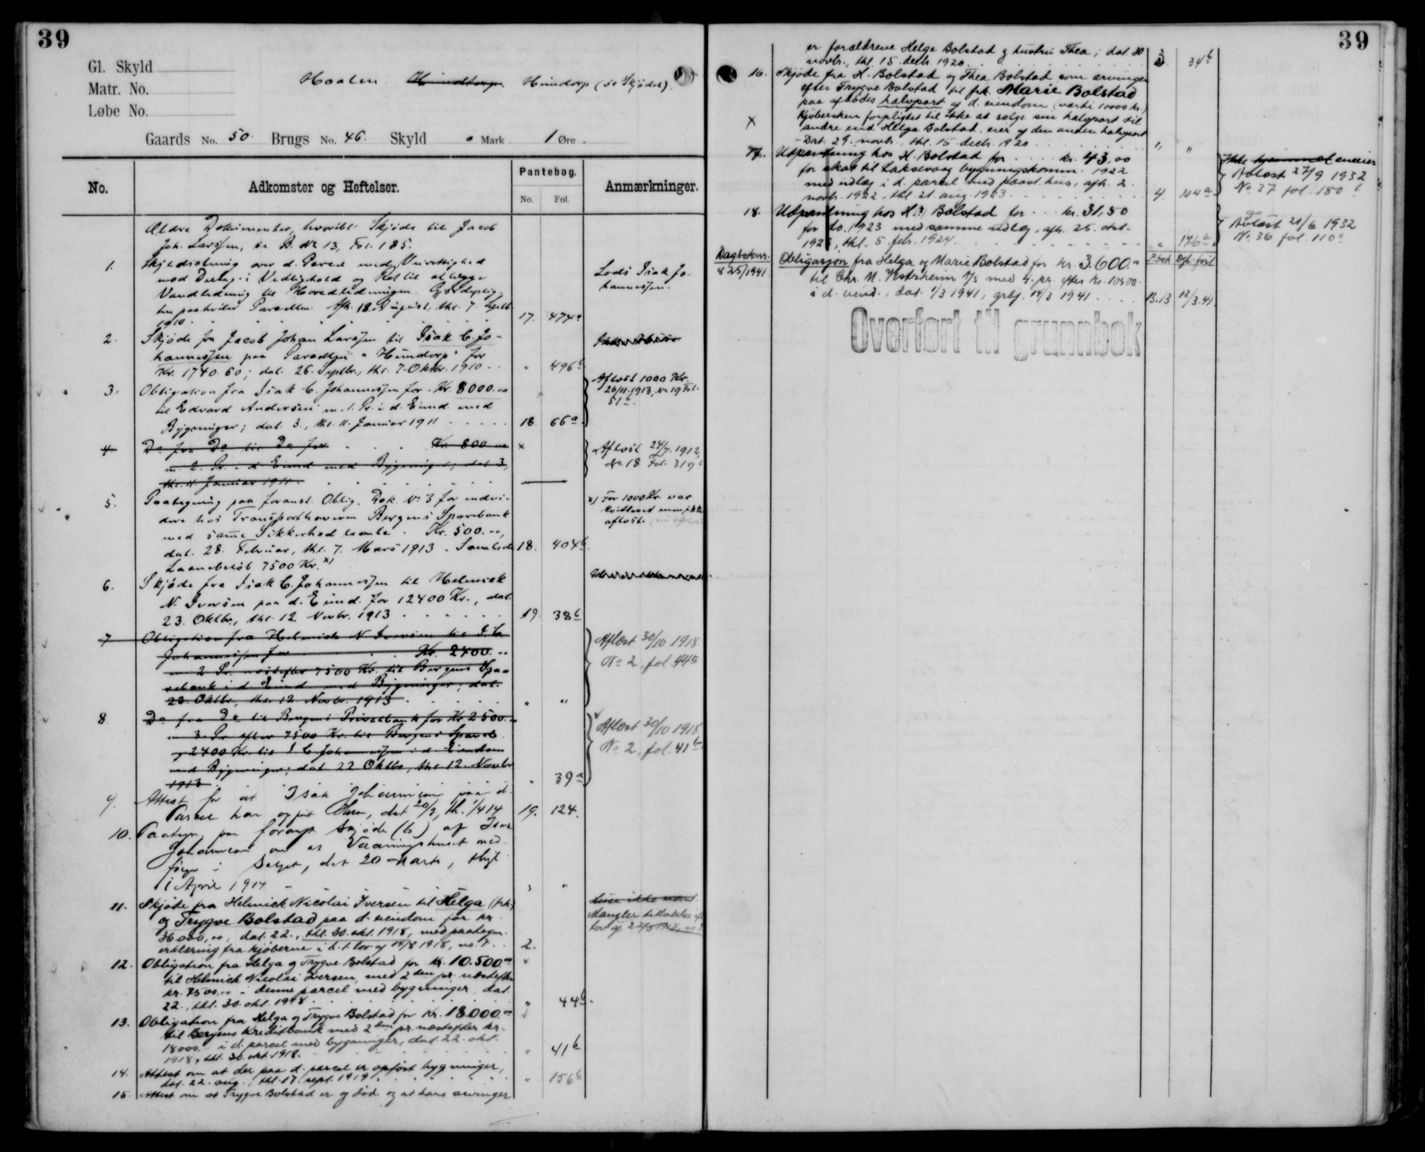 39
Gl. Skyld
Matr. No.
Løbe No.
Haalen Hundorp (se Skjøder).
Gaards No. 50. Brugs No. 46. Skyld 0 Mark 1 Øre.
No. Adkomster og Heftelser. Pantebog. No. Fol. Anmærkninger.
Ældre Dokumenter, hvoribl. Skjøde til Jacob
Joh. Larssen, se B. No 13, Fol. 185.
1. Skylddeling over d. Parcel med
med Deltag. i Vedlighold og Ret til at lægge
Vandledning til Hovedledningen.
paa Parcellen. Afh. 18 August, thl. 7 Septb.
1910 17. 474a
Lods Isak Jo-
hannessen.
2. Skjøde fra Jacob Johan Larssen til Isak C. Jo-
hannessen paa Parcellen "Hundorp" for
Kr. 1740.60; dat. 26. Septbr., thl. 7. Oktbr. 1910 " 496b
3. Obligation fra Isak C. Johannessen for Kr. 8000.00
til Edvard Andersen m. 1. Pr. i d. Eiend. med
Bygninger; dat. 3., thl. 11. Januar 1911 18 66a
Aflöst 1000 Kr.
26/11.1913, No 19 Fol.
51b.
4 Do fra Do til Do for Kr. 800.00
m. 2. Pr. i d. Eiend. med Bygninger, dat. 3,
thl. 11 Januar 1911
Aflöst 24/7. 1912,
No 18 Fol. 319
5. Paategning paa foranst. Oblig. Dok. No 3 for
dere hos Transporthaveren Bergens Sparebank
med samme Sikkerhed laante Kr. 500.00,
dat. 28. Februar, thl. 7. Mars 1913. Samlede 18. 404b
Laanebeløb 7500 Kr. x)
x) For 1000 Kr. var
kvitteret men ikke
aflöst.
6. Skjøde fra Isak C. Johannessen til Helmick
N. Iversen paa d. Eiend. for 12400 Kr., dat.
23. Oktbr., thl. 12 Novbr. 1913 19. 38b
7 Obligation fra Helmick N. Iversen til I. C.
Johannessen for Kr. 2400.00
m. 2 Pr. næstefter 7500 Kr. til Bergens Spa-
rebank i d. Eiend. med Bygninger, dat.
22 Oktbr., thl. 12 Novbr. 1913 " "
Aflæst 30/10 1918
No 2, fol. 44
8 Do fra Do til Bergens Privatbank for Kr. 2500.
m. 3. Pr. efter 7500 Kr. til Bergens Spareb.
og 2400 Kr. til I. C. Johannessen i d. Eiendom
med Bygninger; dat. 22 Oktbr., thl. 12. Novbr.
1913 " 39a
Aflæst 30/10 1918
No 2, fol. 41b
9. Attest for at Isak Johannesen paa d.
Parcel har opført Hus, dat 20/3, thl. 1/4 14 19. 124.
10. Paategn. paa foranst Skjøde (6) af Isak
Johannesen om at Vaaningshuset med-
følger i Salget, dat 20 Marts, thgl
1 April 1914 " "
11. Skjøde fra Helmick Nicolai Iversen til Helga (frk)
og Trygve Bolstad paa d. eiendom for kr.
36000,00, dat. 22., thl. 30. okt. 1918, med paategn.
erklæring fra kjøberne i h. t. lov af 14/8 1918, no 7. 2.
Mangler
12. Obligation fra Helga og Trygve Bolstad for kr. 10.500.00
til Helmick Nicolai Iversen, med 2den pr. næstefter
kr. 7500,00 i denne parcel med bygninger, dat.
22., thl. 30. okt. 1918. " 44b
13. Obligation fra Helga og Trygve Bolstad for Kr. 18000.00
til Bergens Kreditbank med 2den pr. næstefter kr.
18000 i d. parcel med bygninger, dat 22. okt.
1918, thl. 30. okt 1918. " 41b
14. Attest om at der paa d. parcel er opført bygninger,
dat. 22. aug., thl. 17. sept. 1919. " 156b
15. Attest om at Trygve Bolstad er og død og at hans arvinger
39
er forældrene Helge Bolstad og hustru Thea; dat. 30
novbr., thl. 15. decb. 1920. 3 34b
16. Skjøde fra H. Bolstad og Thea Bolstad som arvinger
efter Trygve Bolstad til frk. Marie Bolstad
paa afdødes halvpart af d. eiendom (værdi 10000 kr.)
Kjøbersken forpligtet til ikke at sælge sin halvpart til
andre end Helga Bolstad, eier af den anden halvpart
Dat. 29. novbr. thl. 15 decb. 1920. " "
17. Utpantning hos H. Bolstad for kr. 43,00
for skat til Laksevaag bygningskommun. 1922
med utlæg i d. parcel med paast. hus, afh. 2.
novbr. 1922, thl. 21. aug. 1923. 4. 104a
Avlæst 27/9 1932
No 37 fol. 180
18. Utpantning hos H. Bolstad for kr. 31,50
for do. 1923 med samme utlæg, afh. 25. okt.
1923, thl. 5 febr. 1924. " 176b
Avlæst 20/6 1932
No 36 fol. 110
Dagboknr.
825/1941
Obligasjon fra Helga og Marie Bolstad for kr 3.600.00
til Chr. M. Vestrheim A/S med 4. pr. efter kr. 10500
i d. eiend., dat. 1/3 1941, grbf. 12/3 1941. B.13 12/3.41
Overført til grunnbok